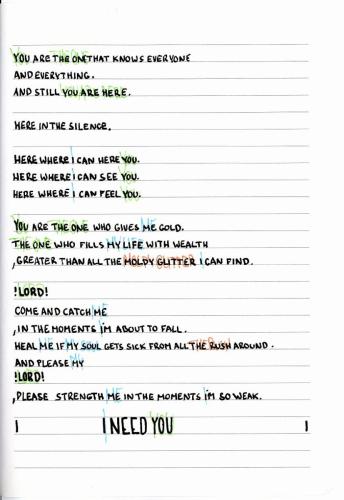 YOU ARE THE ONE THAT KNOWS EVERYONE
AND EVERYTHING.
AND STILL YOU ARE HERE.
HERE IN THE SILENCE.
HERE WHERE I CAN HERE YOU.
HERE WHERE I CAN SEE YOU.
HERE WHERE I CAN FEEL YOU.
YOU ARE THE ONE WHO GIVES ME GOLD.
THE ONE WHO FILLS MY LIFE WITH WEALTH
, GREATER THAN ALL THE MOLDY GLITTER I CAN FIND.
!LORD!
COME AND CATCH ME
, IN THE MOMENTS I'M ABOUT TO FALL.
HEAL ME IF MY SOUL GETS SICK FROM ALL THE RUSH AROUND.
AND PLEASE MY
!LORD!
, PLEASE STRENGTH ME IN THE MOMENTS I'M SO WEAK.
I I NEED YOU I